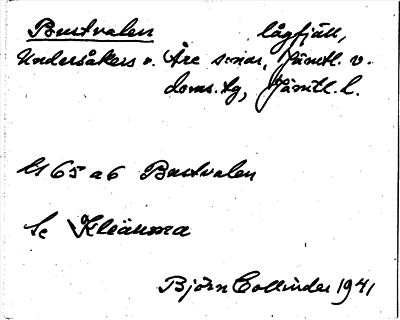 Bustvalen lågfjäll,
Undersåkers o. Åre snar, Jämtl. v.
doms. tg, Jämtl. l.
65 a 6 Bustvalen
Se Kleäuma
Björn Collinder 1941